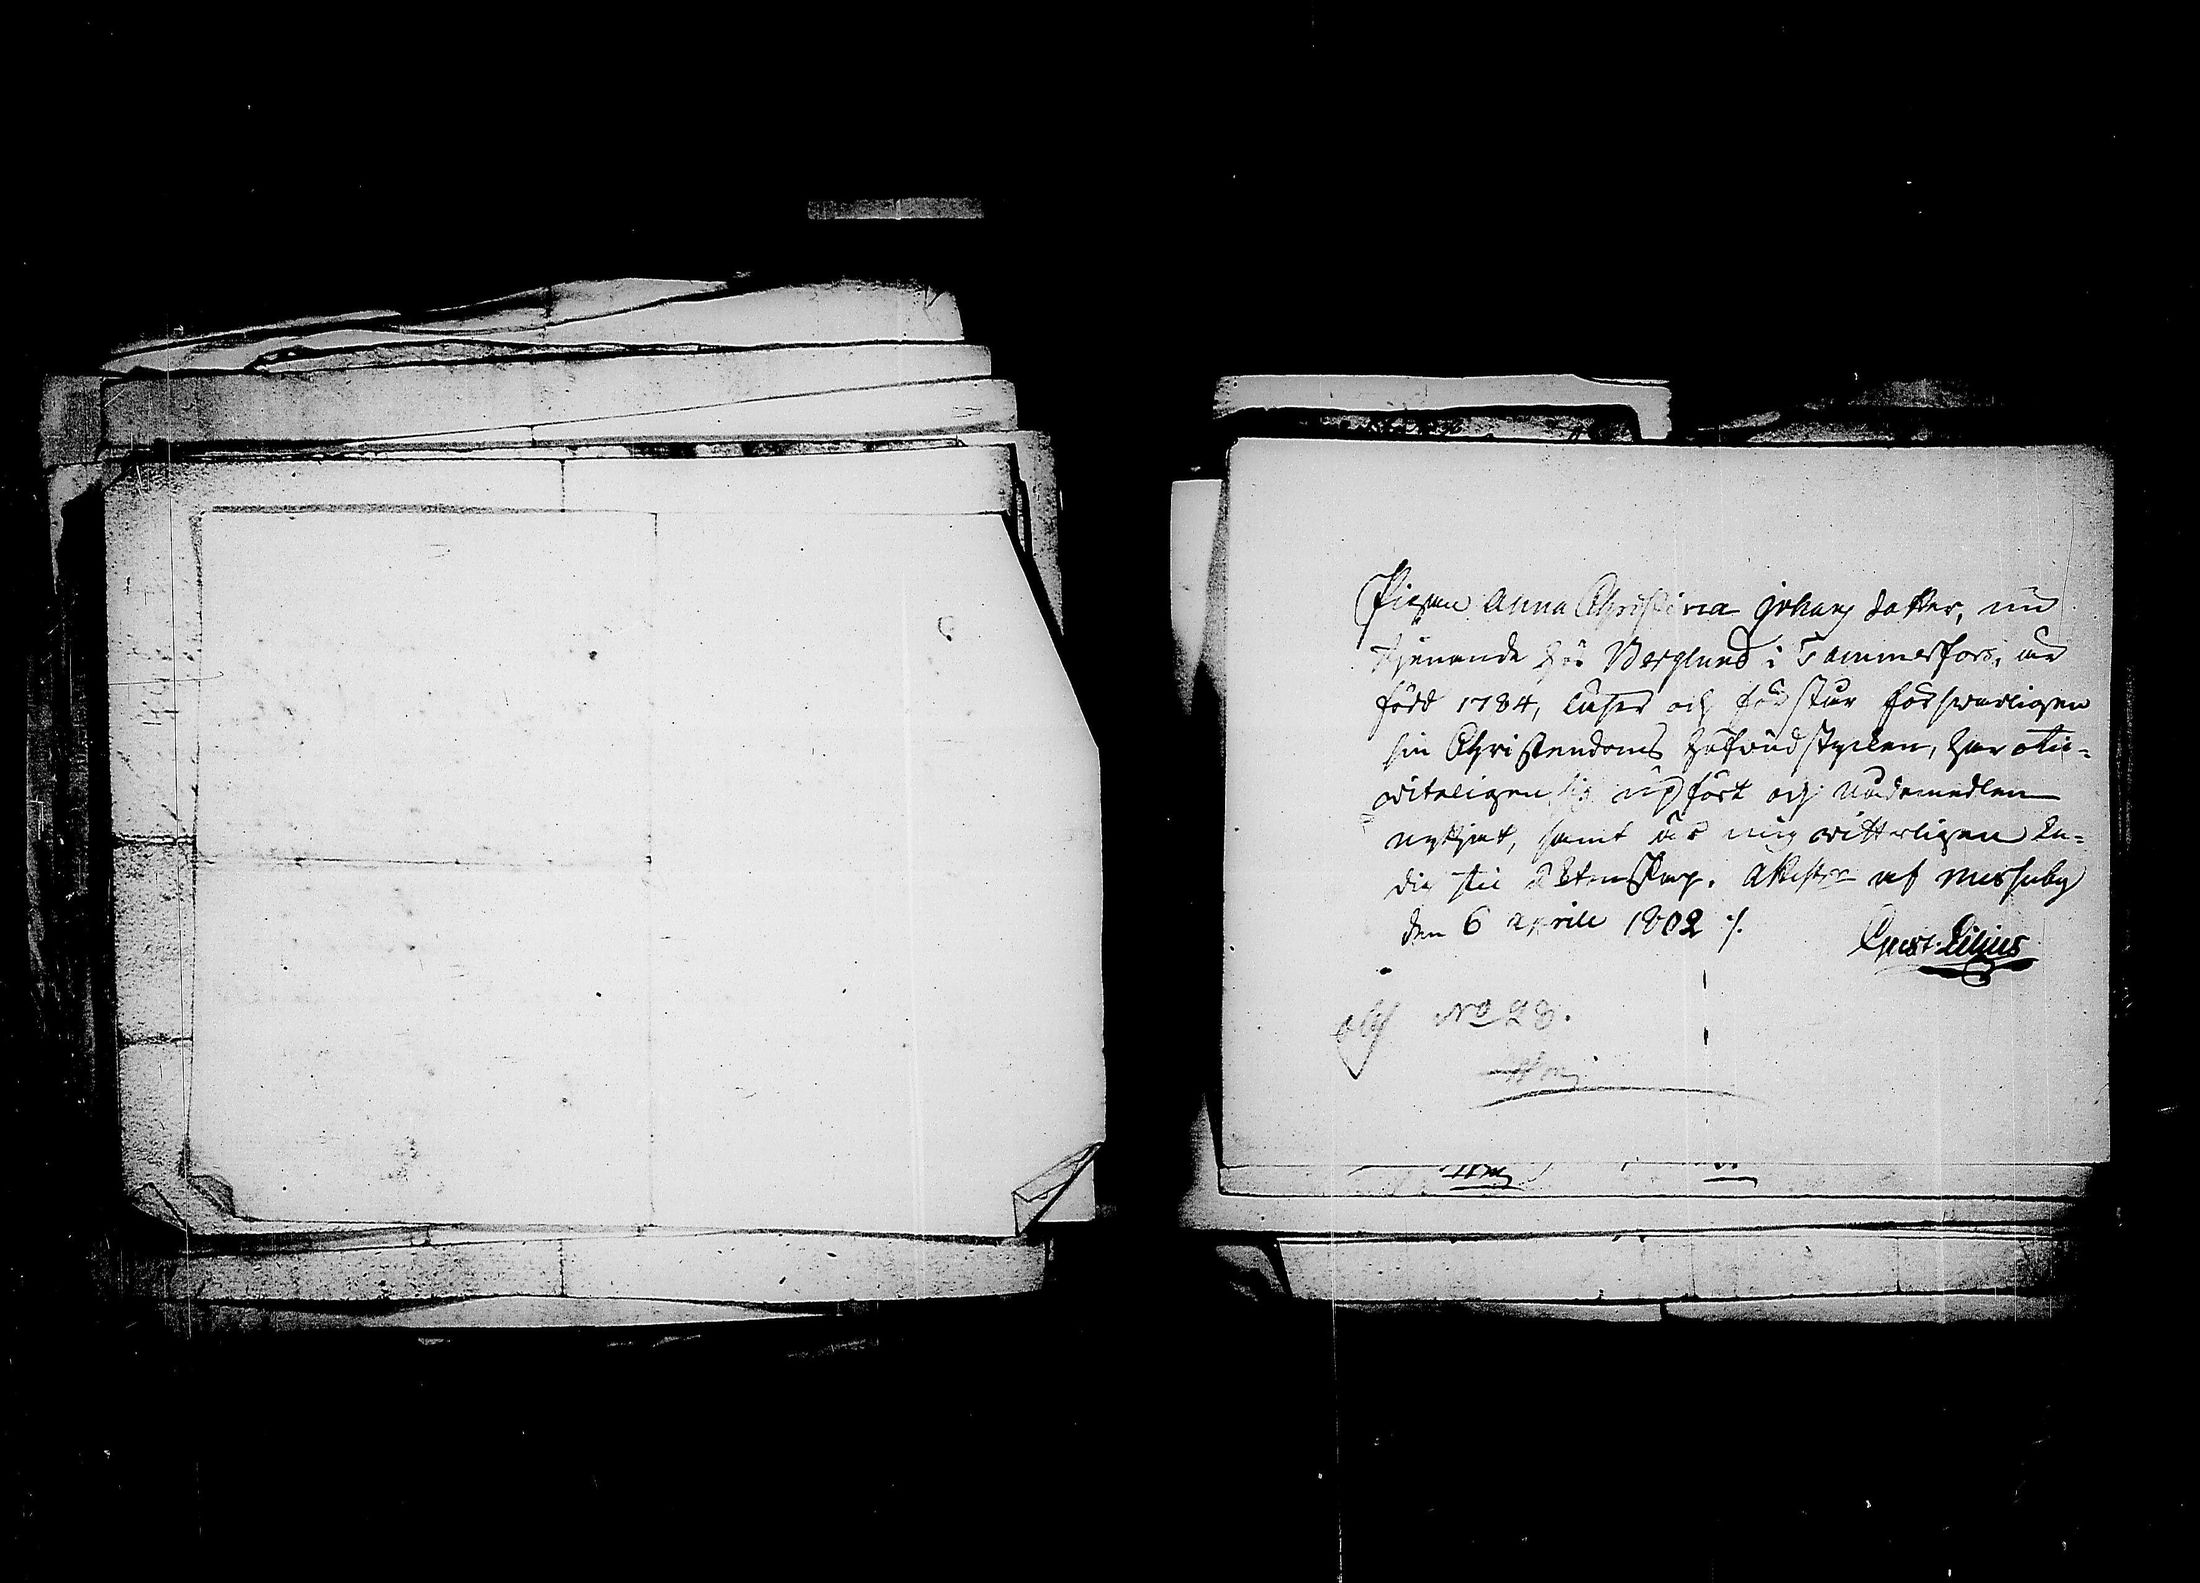 Pigan Anna Christina Johans dotter, nu
tjenande hos Berglund i Tammerfors, är
född 1784, läser och förstår förswarligen
sin Christendoms hufwudstycken, har otad-
witeligen sig upfört och nådemedlen
nyttjat, samt är mig witterligen le-
dig til Ecktenskap. Attest. af Messuby
den 6 Aprill 1802 ./.
Gust. Lilius
No 28.